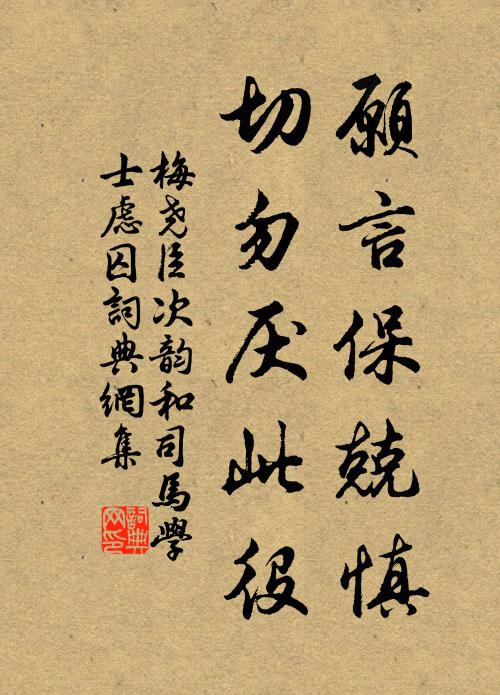 願言保兢慎
切勿厌此役
梅堯臣次韵和司馬學
士慮囚詞典網集
詞典
网印